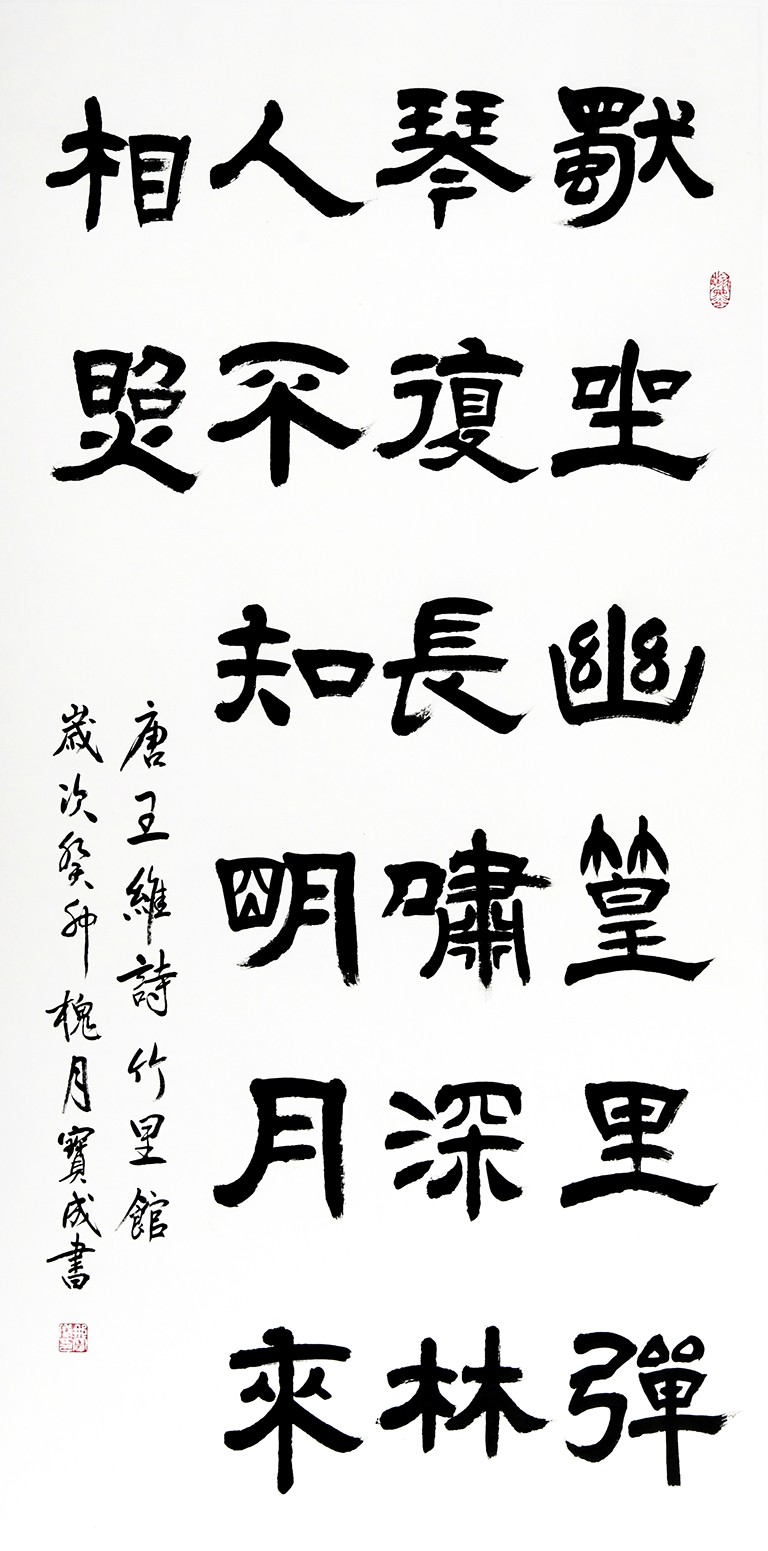 獨坐幽篁里彈
琴復長嘯深林
人不知明月來
相照
唐王維詩竹里館
歲次癸卯槐月寶成書